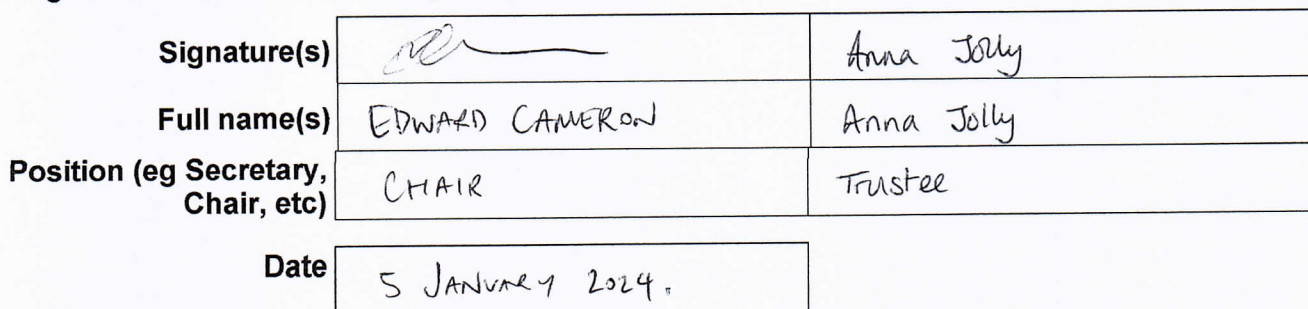 Signature(s) Anna Jolly
Full name(s) EDWARD CAMERON Anna Jolly
Position (eg Secretary,
Chair, etc) CHAIR Trustee
Date 5 JANUARY 2024.